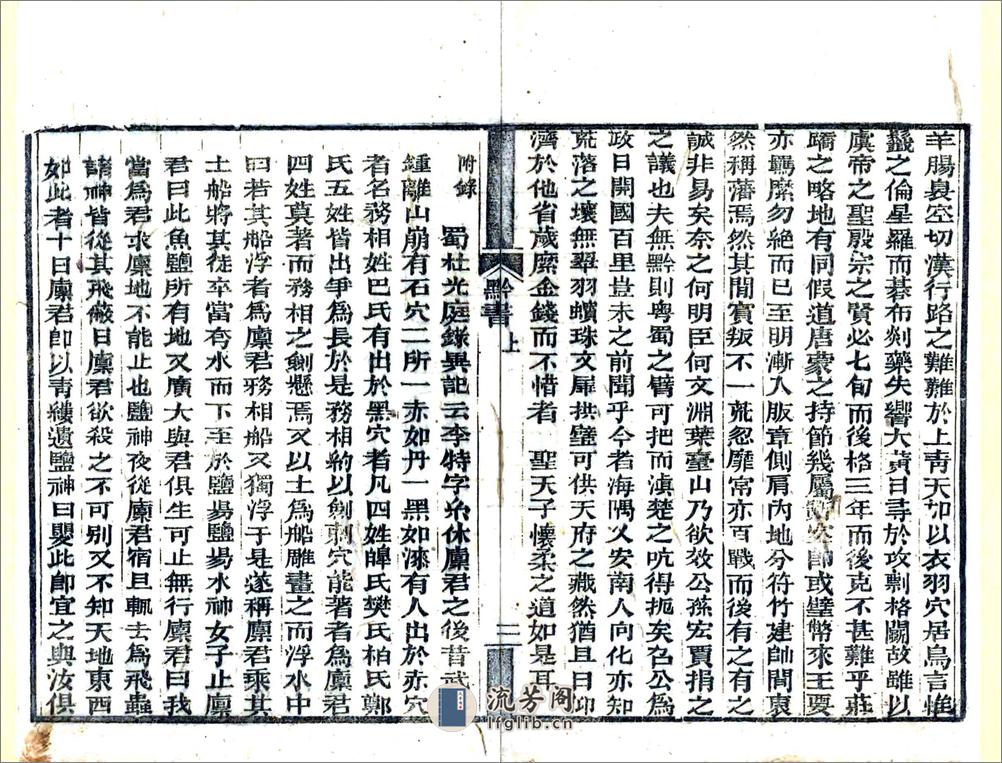 羊腸裊空切漢行路之難難於上靑天加以衣羽穴居鳥言椎
髽之倫星羅而棊布剡藥失響大黃日尋於攻剽格鬬故雖以
虞帝之聖殷宗之賢必七旬而後格三年而後克不甚難乎莊
蹻之略地有同假道唐蒙之持節幾屬鑿空卽或璧幣來王要
亦羈縻勿絕而已至明漸入版章側肩內地分符竹建帥閫裒
然稱藩焉然其間賓叛不一䓤忽靡常亦百戰而後有之有之
誠非易矣奈之何明臣何文淵葉臺山乃欲效公孫宏賈捐之
之議也夫無黔則粵蜀之臂可把而滇楚之吭得扼矣召公爲
政日開國百里豈未之前聞乎今者海隅乂安南人向化亦知
荒落之壤無翠羽蠙珠文犀拱璧可供天府之藏然猶且日仰
濟於他省歲縻金錢而不惜者 聖天子懷柔之道如是耳
黔書 上
二
附錄 蜀杜光庭錄異記云李特字糸休廪君之後昔武
鍾離山崩有石穴二所一赤如丹一黑如漆有人出於赤穴
者名務相姓巴氏有出於黑穴者凡四姓皥氏樊氏柏氏鄭
氏五姓皆出爭爲長於是務相約以劍刺穴能著者爲廪君
四姓莫著而務相之劍懸焉又以土爲船雕畫之而浮水中
曰若其船浮者爲廪君務相船又獨浮于是遂稱廪君乘其
土船將其徒卒當夸水而下至於鹽場鹽場水神女子止廪
君曰此魚鹽所有地又廣大與君俱生可止無行廪君曰我
當爲君求廪地不能止也鹽神夜從廪君宿旦輒去爲飛蟲
諸神皆從其飛蔽日廪君欲殺之不可別又不知天地東西
如此者十日廪君卽以靑縷遺鹽神曰嬰此卽宜之與汝俱
流芳阁
lfglib.cn